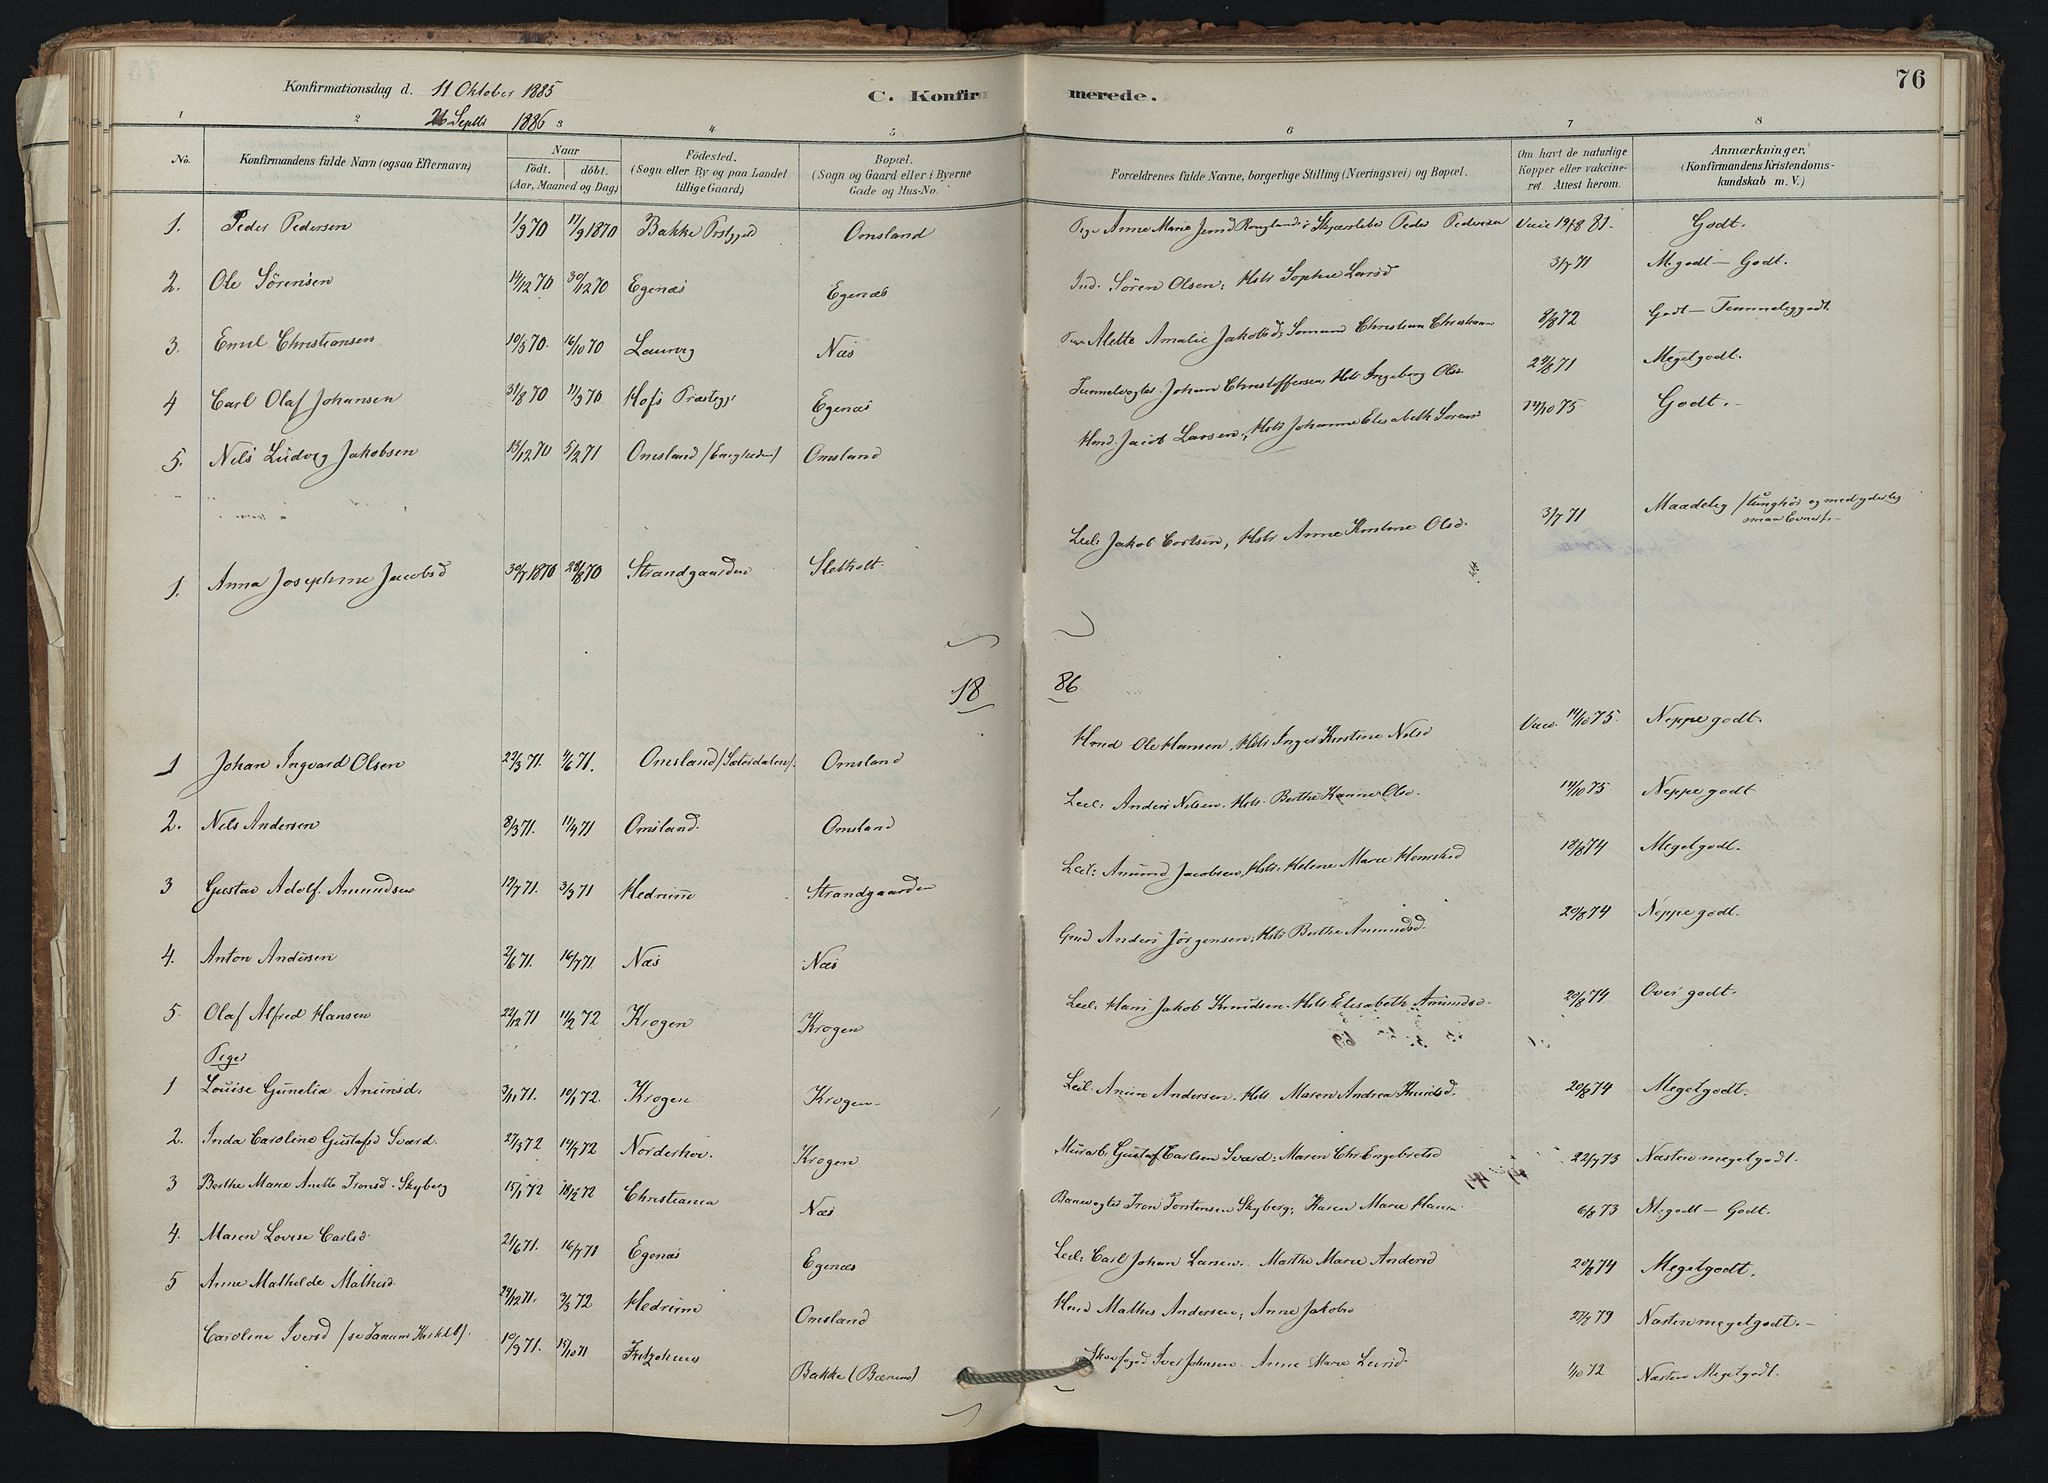 76
Konfirmationsdag d. 11 Oktober 1885
26 Septbr 1886
C. Konfirmerede.
1 2 3 4 5 6 7 8
No. Konfirmandens fulde Navn (ogsaa Efternavn) Naar födt. döbt. (Aar, Maaned og Dag) Födested. (Sogn eller By og paa Landet tillige Gaard) Bopæl. (Sogn og Gaard eller i Byerne Gade og Hus-No. Forældrenes fulde Navne, borgerlige Stilling (Næringsvei) og Bopæl. Om havt de naturlige Kopper eller vakcineret. Attest herom. Anmærkninger. (Konfirmandens Kristendomskundskab m. V.)
1. Peder Pedersen 1/9 70 17/9 1870 Bakke Omsland Pige Anne Marie Peder Pedersen 19/8 81. Godt.
2. Ole Sörensen 14/12 70 30/12 70 Egenæs Egenæs Ind. Sören Olsen, Hstr Sophie Larsd 3/7 71 M. godt – Godt.
3. Emil Christiansen 10/3 70. 16/10 70 Laurvig Næs Alette Amalie Jakobsd, Sömand Christian Christiansen 8/8 72 Godt – Temmeliggodt.
4 Carl Olaf Johansen 31/8 70 11/9 70 Hofs Præstegj. Egenæs Tunnelvogter Johan Christoffersen, Hstr Ingeborg Olsd. 29/8 71 Megetgodt.
5. Nils Ludvig Jakobsen 13/12 70 5/2 71 Omsland /Enigheden/ Omsland Hmd. Jacob Larsen, Hstr Johanne Elisabeth Sorensd 14/10 75 Godt. –
1. Anna Josephine Jacobsd 30/7 1870 28/8 70 Strandgaarden Sletholt Leil: Jakob Cortsen, Hstr Anne Kirstine Olsd. 3/7 71 Maadelig /tunghör og
18 86
1 Johan Ingvard Olsen 22/3 71. 4/6 71. Omsland /Sæterdalen/. Omsland Hmd Ole Hansen, Hstr Inger Kirstine Nilsd Vacc. 14/10 75. Neppe godt.
2. Nils Andersen 8/3 71. Omsland. Omsland Leil: Anders Nilsen. Hstr. Berthe Hanne Olsd. 14/10 75. Neppe godt
3 Gustav Adolf Amundsen 12/7 71. 3/9 71 Hedrum Strandgaarden Leil: Amund Jacobsen, Hstr: Helene Marie Henriksd 18/8 74 Megetgodt.
4. Anton Andersen 2/6 71. 16/7 71 Næs Næs Gmd Anders Jörgensen, Hstr Berthe Amundsd. 20/8 74 Neppe godt.
5. Olaf Alfred Hansen 22/12 71 11/2 72 Krogen Krogen Leil: Hans Jakob Knudsen. Hstr Elisabeth Amundsd. 20/8 74 Over godt.
Piger
1 Louise Gunelia Anunsd. 3/11 71. 10/1 72. Krogen Krogen Leil. Anun Andersen. Hstr Maren Andrea Knudsd. 20/8 74 Megetgodt.
2. Inda Caroline Gustafsd Sværd. 27/3 72 14/7 72 Norderhov. Krogen Murarb. Gustaf Carlsen Sværd: Maren Chr. Engebretsd 22/7 73 Næsten megetgodt.
3 Berthe Marie Anette Tronsd. Skyberg 15/1 72 18/2 72 Christiania Næs Banevogter Tron Torstensen Skyberg; Karen Marie Hansd. 6/8 73 M. godt – Godt.
4. Maren Lovise Carlsd. 21/6 71. 16/7 71 Egenæs Egenæs Leil: Carl Johan Larsen. Marthe Marie Andersd 20/8 74 Megetgodt.
5 Anne Mathilde Mathisd. 29/12 71. 3/3 72 Hedrum Omsland Hmd Mathis Andersen; Anne Jakobsd 27/7 79 Næsten megetgodt. –
Caroline Iversd /se Tanum 10/9 71. 15/10 71 Fritzöehus Bakke (Bærums) Skovfoged Iver Johnsen. Anne Marie Larsd. 1/10 72 Næsten Megetgodt.